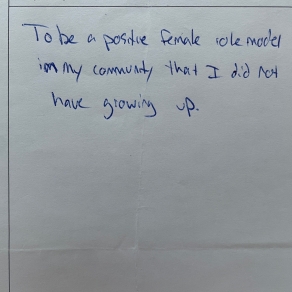 To be a positive female role model
in my community that I did not
have growing up.